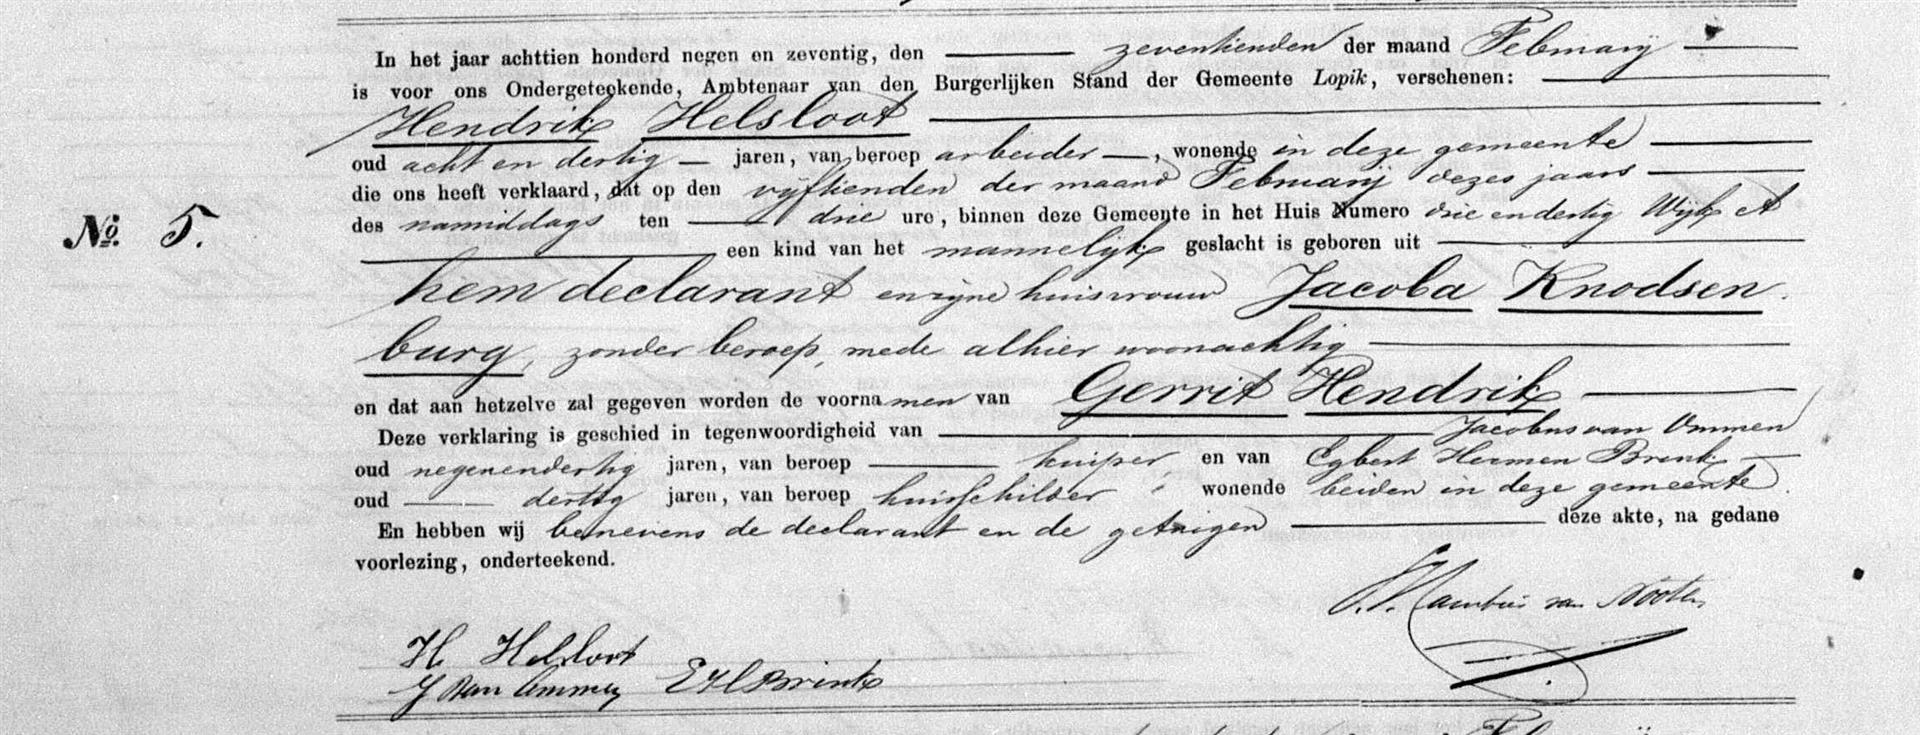 In het jaar achttien honderd negen en zeventig, den zeventienden der maand Februarij
is voor ons Ondergeteekende, Ambtenaar van den Burgerlijken Stand der Gemeente Lopik, verschenen:
Hendrik Helsloot
oud acht en dertig jaren, van beroep arbeider, wonende in deze gemeente
die ons heeft verklaard, dat op den vijftienden der maand Februarij dezes jaars
No. 5. des namiddags ten drie ure, binnen deze Gemeente in het Huis Numero drie en dertig Wijk A
een kind van het mannelijk geslacht is geboren uit
hem declarant en zijne huisvrouw Jacoba Knodsen
burg, zonder beroep, mede alhier woonachtig
en dat aan hetzelve zal gegeven worden de voornamen van Gerrit Hendrik
Deze verklaring is geschied in tegenwoordigheid van Jacobus van Ommen
oud negenendertig jaren, van beroep kuiper en van Egbert Hermen Brink
oud dertig jaren, van beroep huisschilder wonende beiden in deze gemeente.
En hebben wij benevens de declarant en de getuigen deze akte, na gedane
voorlezing, onderteekend.
van Nooten
H Helsloot
J van Ommen EHBrink